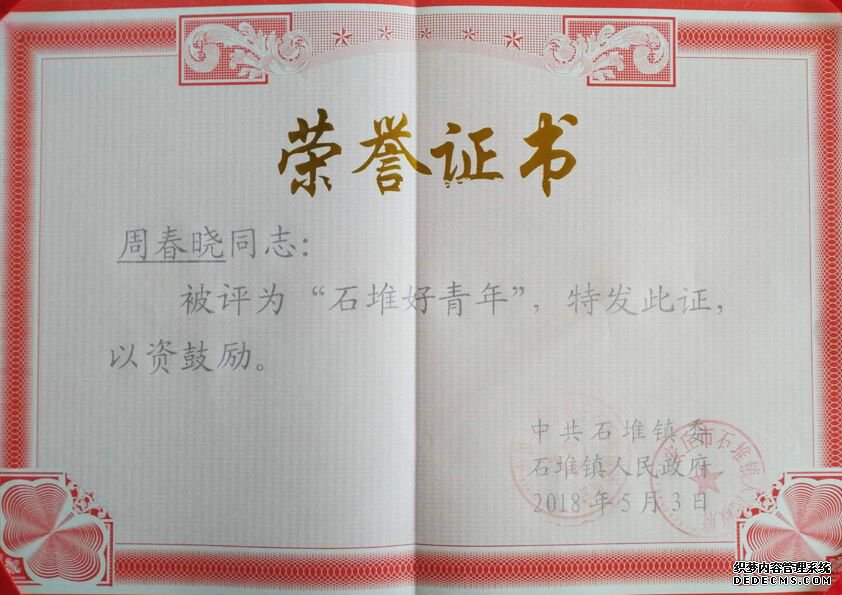 荣誉证书
周春晓同志：
被评为“石堆好青年”，特发此证，
以资鼓励。
中共石堆镇委
石堆镇人民政府
2018年5月3日
织梦内容管理系统
DEDECMS.COM